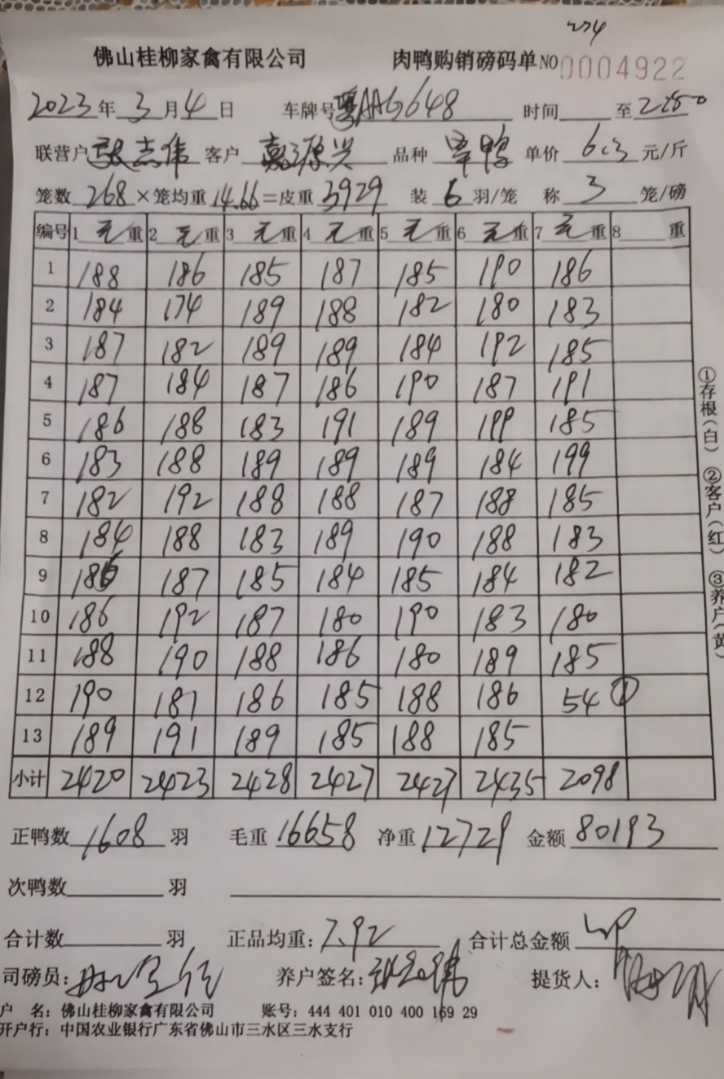 274
佛山桂柳家禽有限公司 肉鸭购销磅码单 NO 0004922
2023年3月4日 车牌号粤AAG648 时间 至2250
联营户张志伟 客户 源兴 品种 单价6.3元/斤
笼数268×笼均重14.66=皮重3929 装6羽/笼 称3笼/磅
编号 1毛重 2毛重 3毛重 4毛重 5毛重 6毛重 7毛重 8重
1 188 186 185 187 185 190 186
2 184 174 189 188 182 180 183
3 187 182 189 189 184 192 185
4 187 184 187 186 190 187 191
5 186 188 183 191 189 199 185
6 183 188 189 189 189 184 199
7 182 192 188 188 187 188 185
8 184 188 183 189 190 188 183
9 186 187 185 184 185 184 182
10 186 192 187 180 190 183 180
11 188 190 188 186 180 189 185
12 190 181 186 185 188 186 54①
13 189 191 189 185 188 185
小计 2420 2423 2428 2427 2427 2435 2098
正鸭数1608羽 毛重16658 净重12729 金额80193
次鸭数 羽
合计数 羽 正品均重:7.92 合计总金额
司磅员: 养户签名:张志伟 提货人:
户 名:佛山桂柳家禽有限公司 账号:444 401 010 400 169 29
开户行:中国农业银行广东省佛山市三水区三水支行
①存根(白) ②客户(红) ③养户(黄)